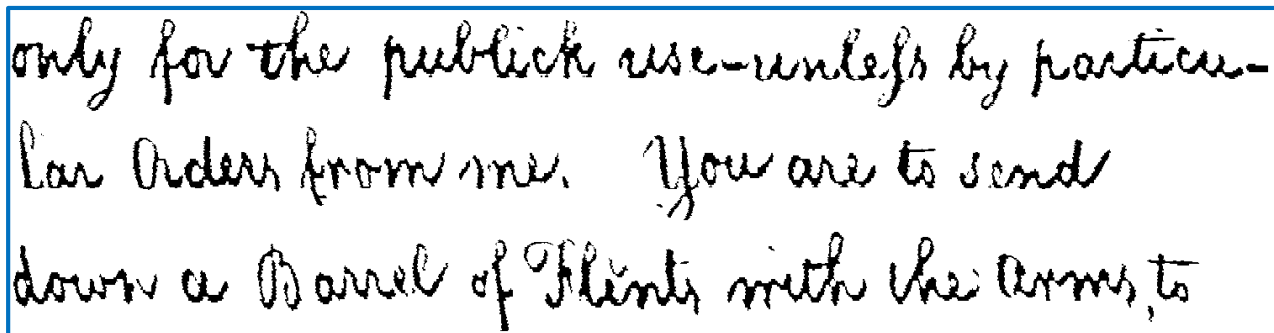 only for the publick use-unleſs by particu-
lar Orders from me. You are to send
down a Barrel of Flints with the Arms, to